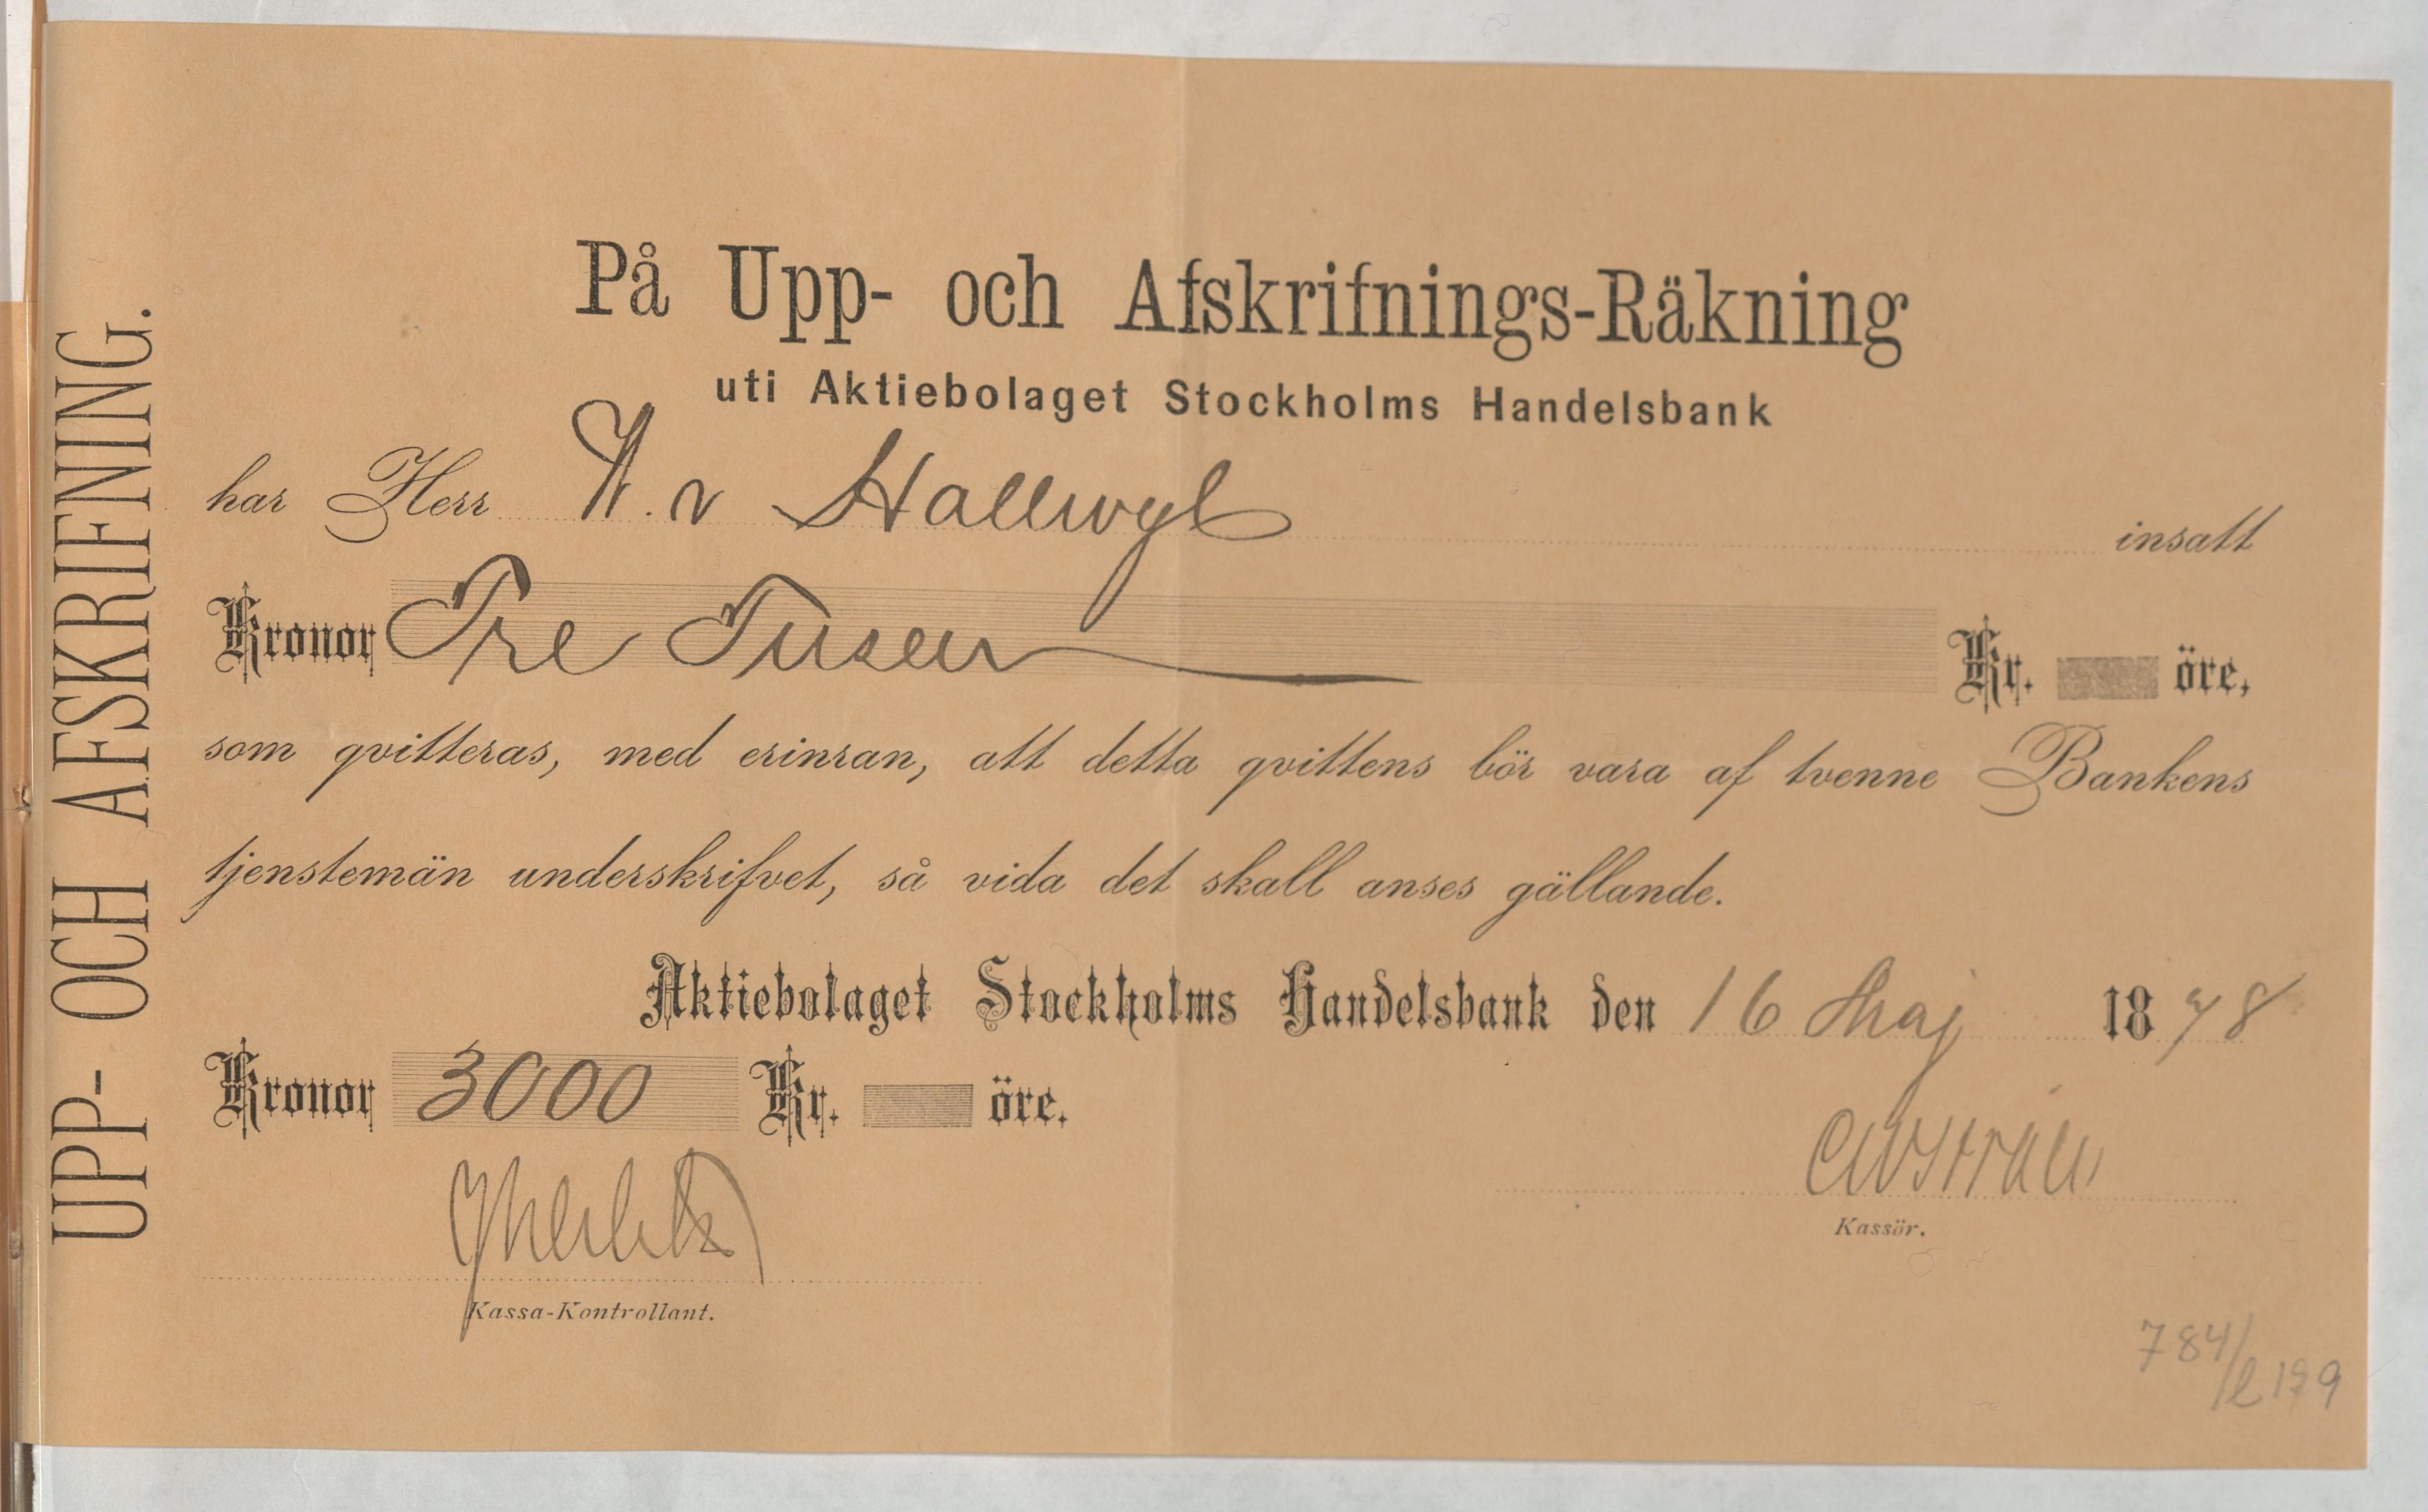 UPP- OCH AFSKRIFNING.
På Upp- och Afskrifnings-Räkning
uti Aktiebolaget Stockholms Handelsbank
har Herr W. v Hallwyl insatt
Kronor Tre Tusen Kr. öre,
som qvitteras, med erinran, att detta qvittens bör vara af tvenne Bankens
tjenstemän underskrifvet, så vida det skall anses gällande.
Aktiebolaget Stockholms Handelsbank den 16 Maj 1878
Kronor 3000 Kr. öre.
Kassör.
Kassa-Kontrollant.
784/